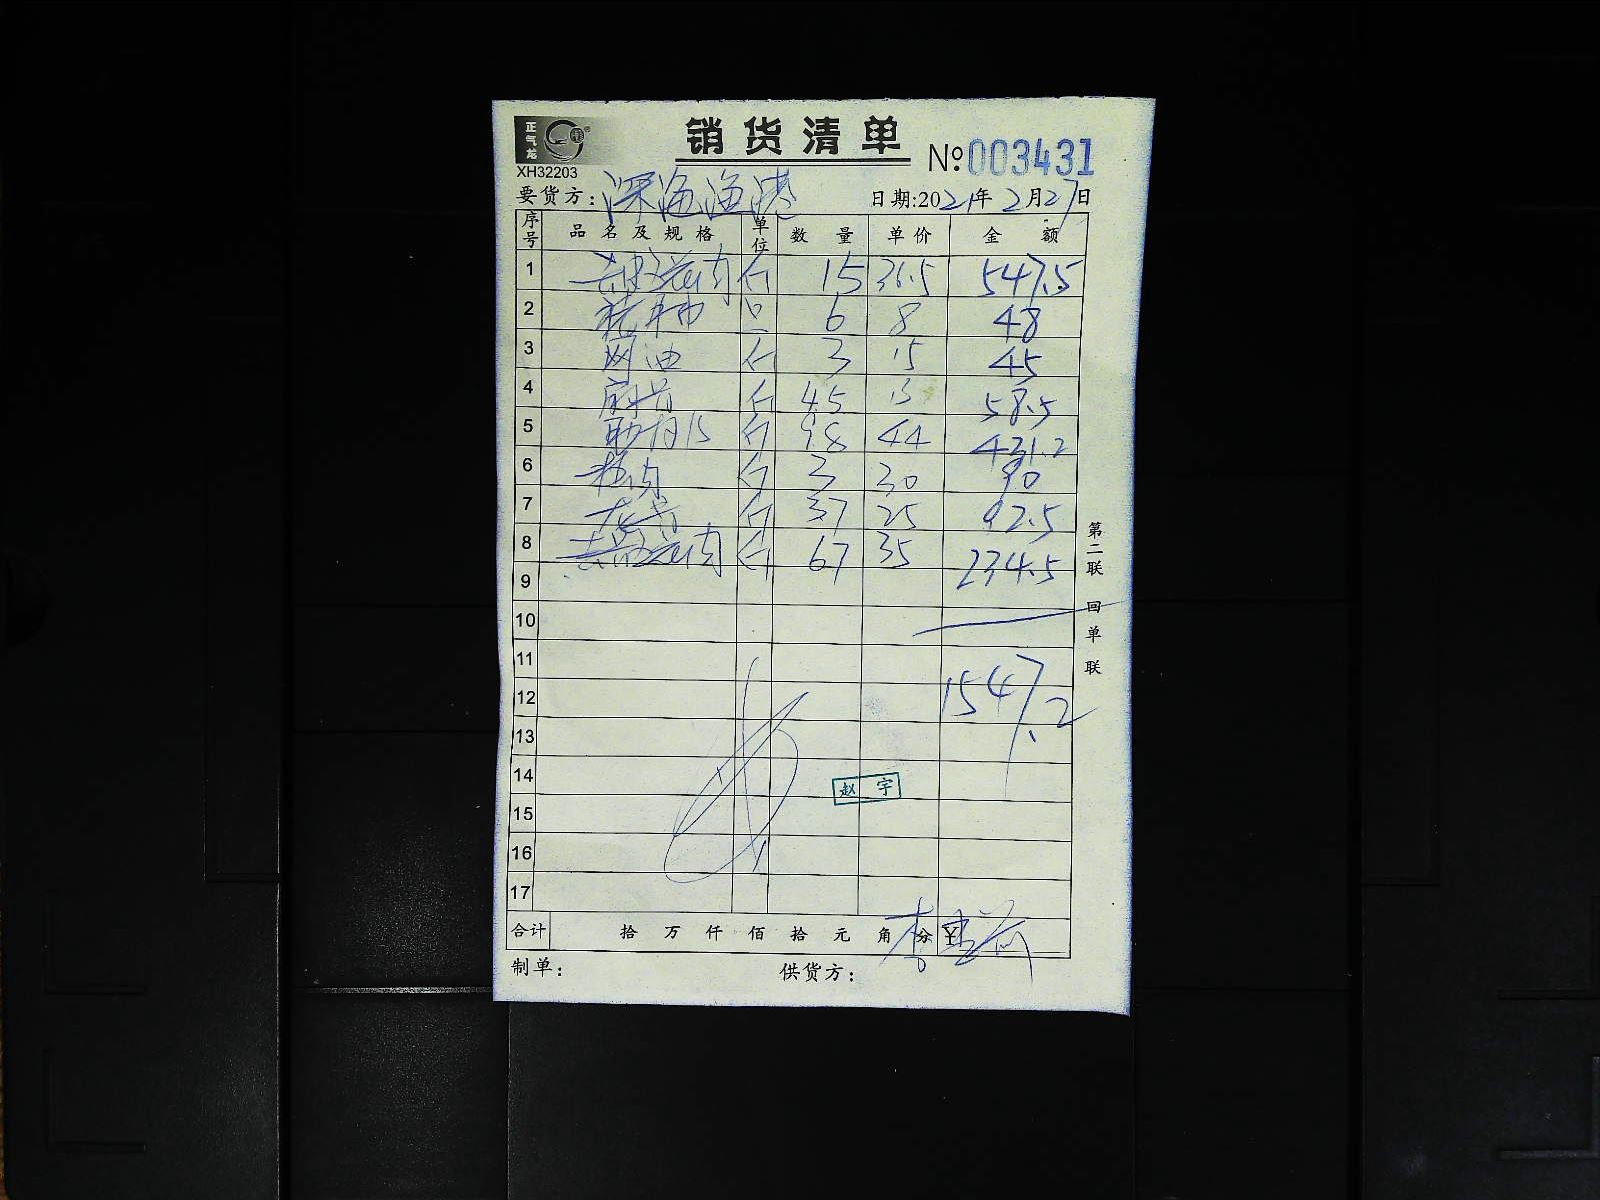 正气龙
销货清单
XH32203
№003431
要货方: 深海渔港 日期:2021年2月27日
序号 品名及规格 单位 数量 单价 金额
1 去皮花肉 斤 15 36.5 547.5
2 只 6 8 48
3 网油 斤 3 15 45
4 斤 4.5 13 58.5
5 斤 9.8 44 431.2
6 斤 3 30 90
7 龙骨 斤 3.7 25 92.5
8 花肉 斤 6.7 35 234.5
9
10
11
12 1547.2
13
14 赵宇
15
16
17
合计 拾万仟佰拾元角分¥
制单: 供货方:
第二联 回单联